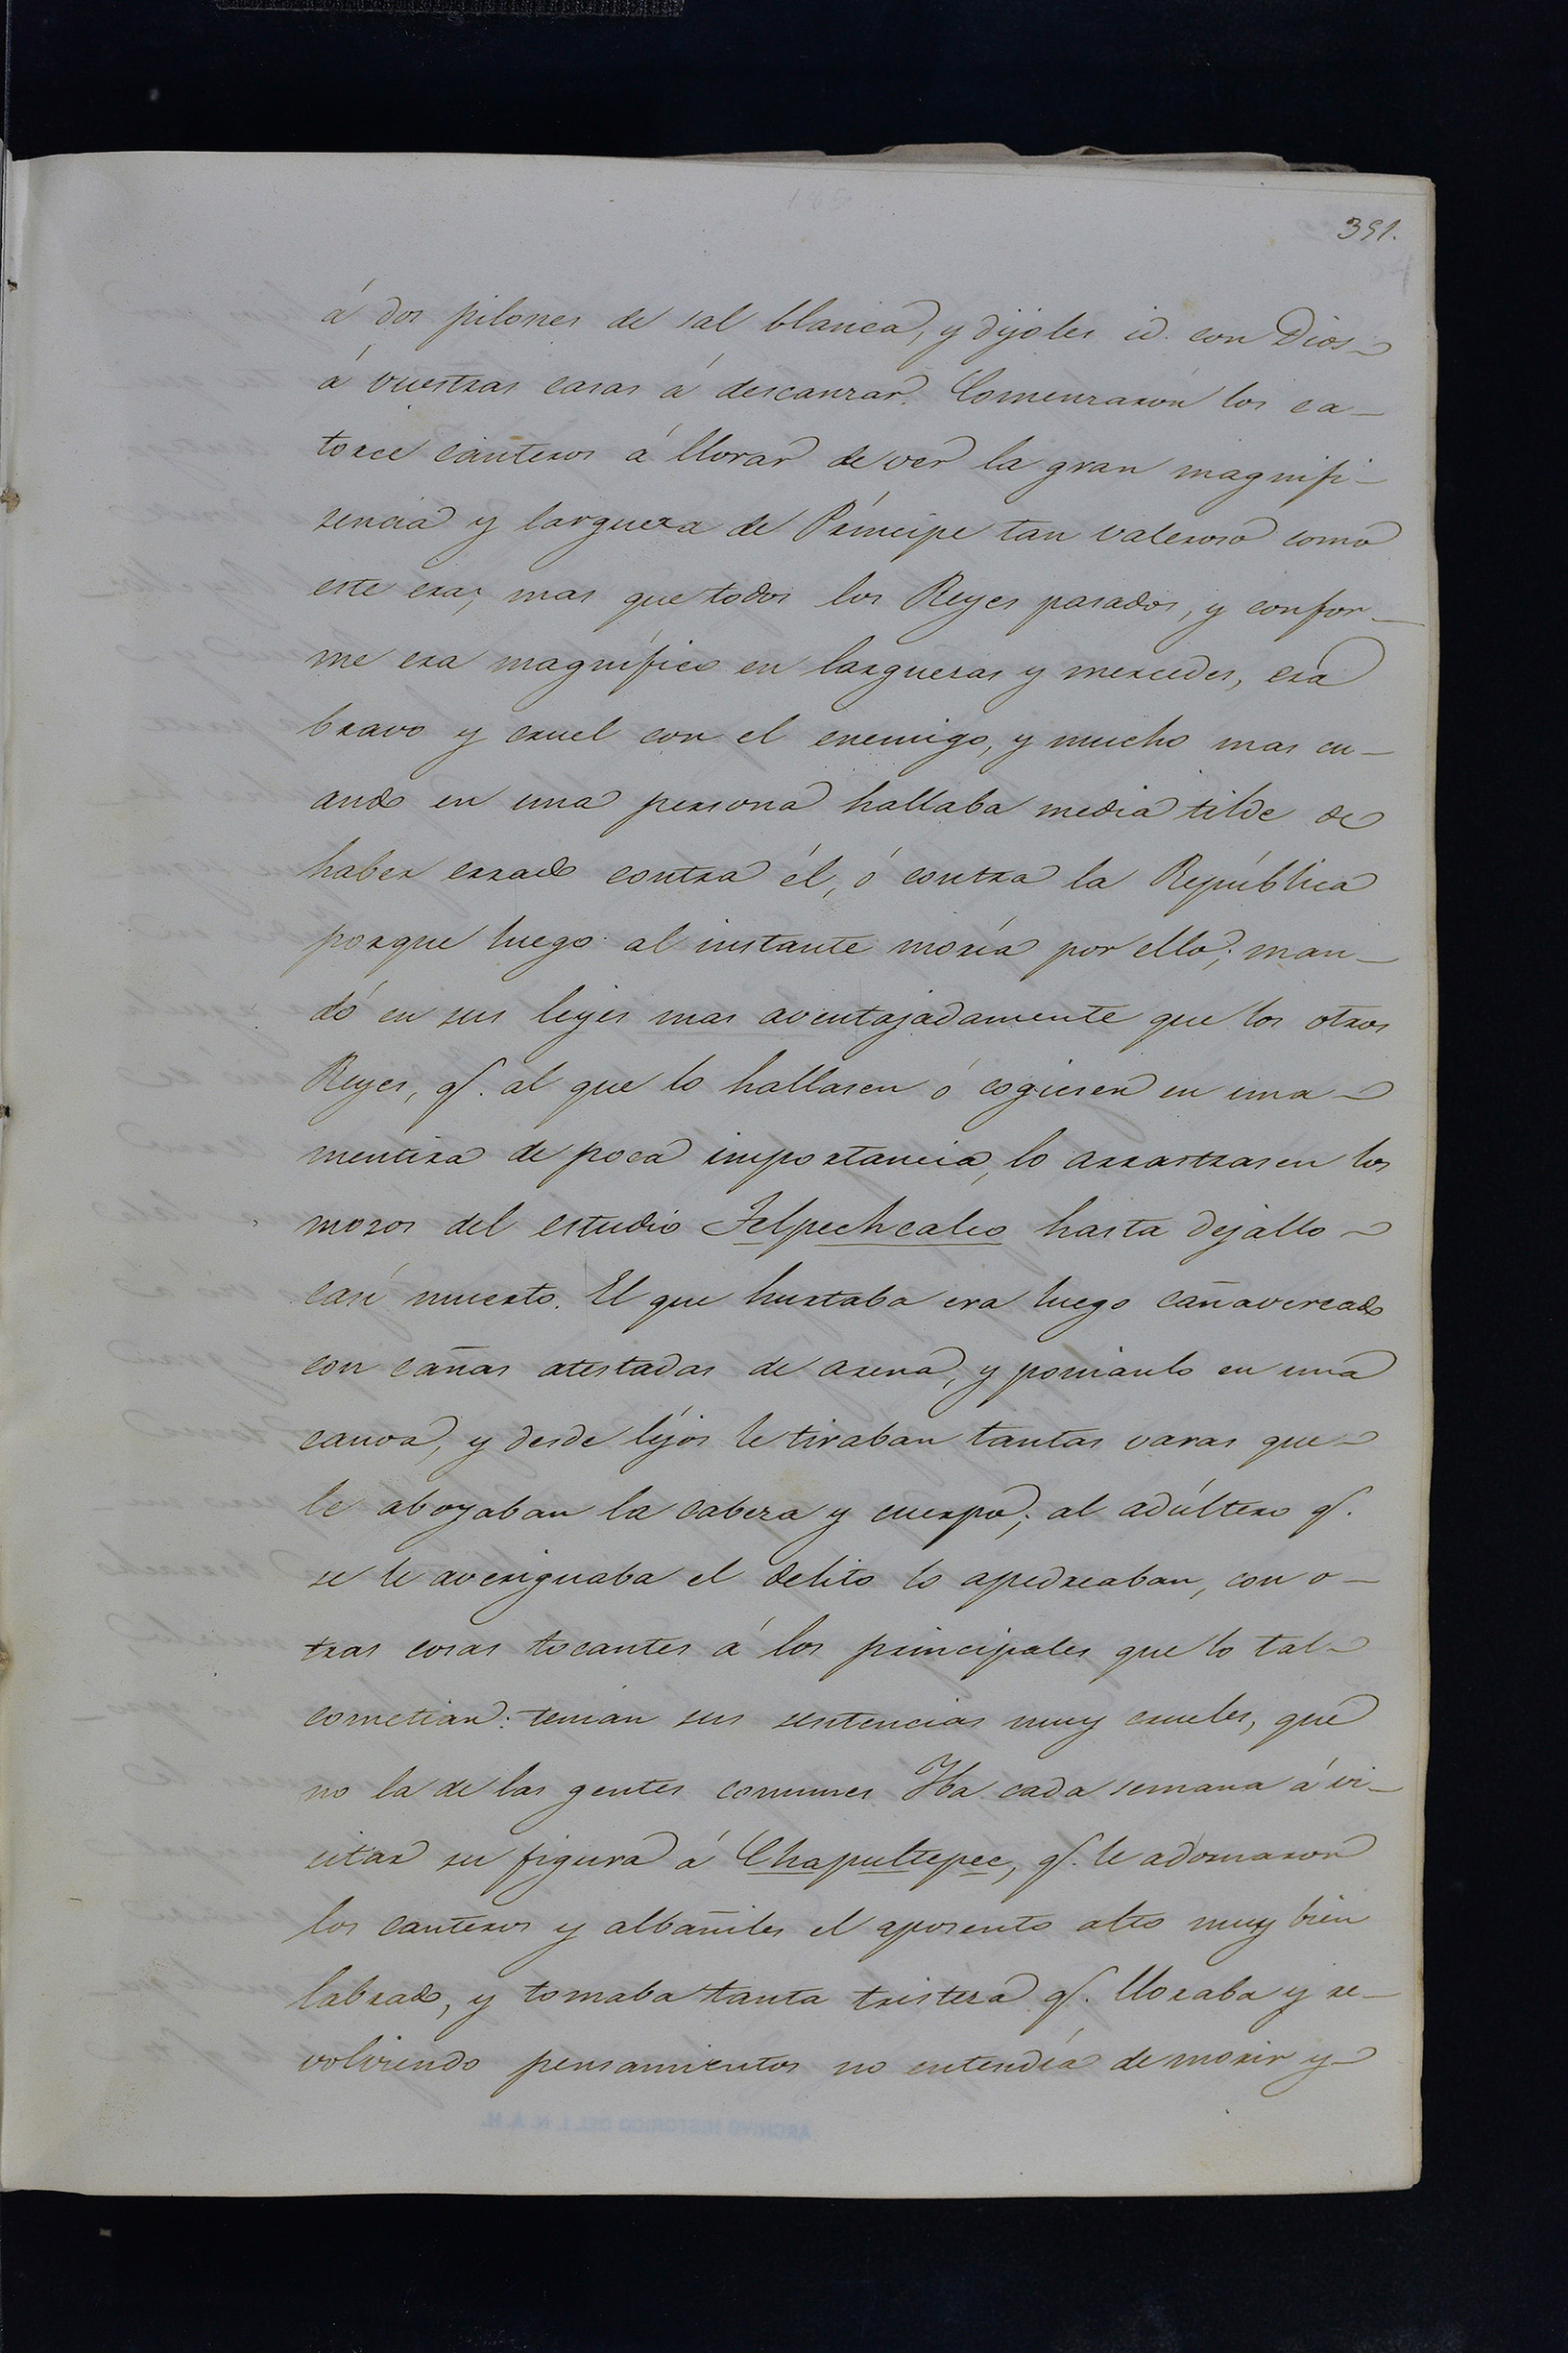 391.
á dos pilones de sal blanca, y dijoles id. con Dios
á vuestras casas á descanzar. Comenzaron los ca-
torce canteros á llorar de ver la gran magnifi-
zencia y largueza de Príncipe tan valeroso como
este era; mas que todos los Reyes pasados, y confor-
me era magnífico en larguezas y mercedes, era
bravo y cruel con el enemigo, y mucho mas cu-
ando en una persona hallaba media tilde de
haber errado contra él, ó contra la República
porque luego al instante moría por ello; man-
dó en sus leyes mas aventajadamente que los otros
Reyes, q. al que lo hallasen ó cogiesen en una
mentira de poca importancia, lo arrastrasen los
mozos del estudio Telpechcalco hasta dejallo
casi muerto. El que hurtaba era luego cañavereado
con cañas atestadas de arena, y ponianlo en una
canoa, y desde léjos le tiraban tantas varas que
le aboyaban la cabeza y cuerpo; al adúltero q.
se le averiguaba el delito lo apedreaban, con o-
tras cosas tocantes á los principales que lo tal
cometian: tenian sus sentencias muy crueles, que
no la de las gentes comunes Yba cada semana á vi-
citar su figura á Chapultepec, q. le adornaron
los canteros y albañiles el aposento alto muy bien
labrado, y tomaba tanta tristeza q. lloraba y re-
volviendo pensamientos no entendía de morir y
ARCHIVO HISTORICO DEL I. N. A. H.